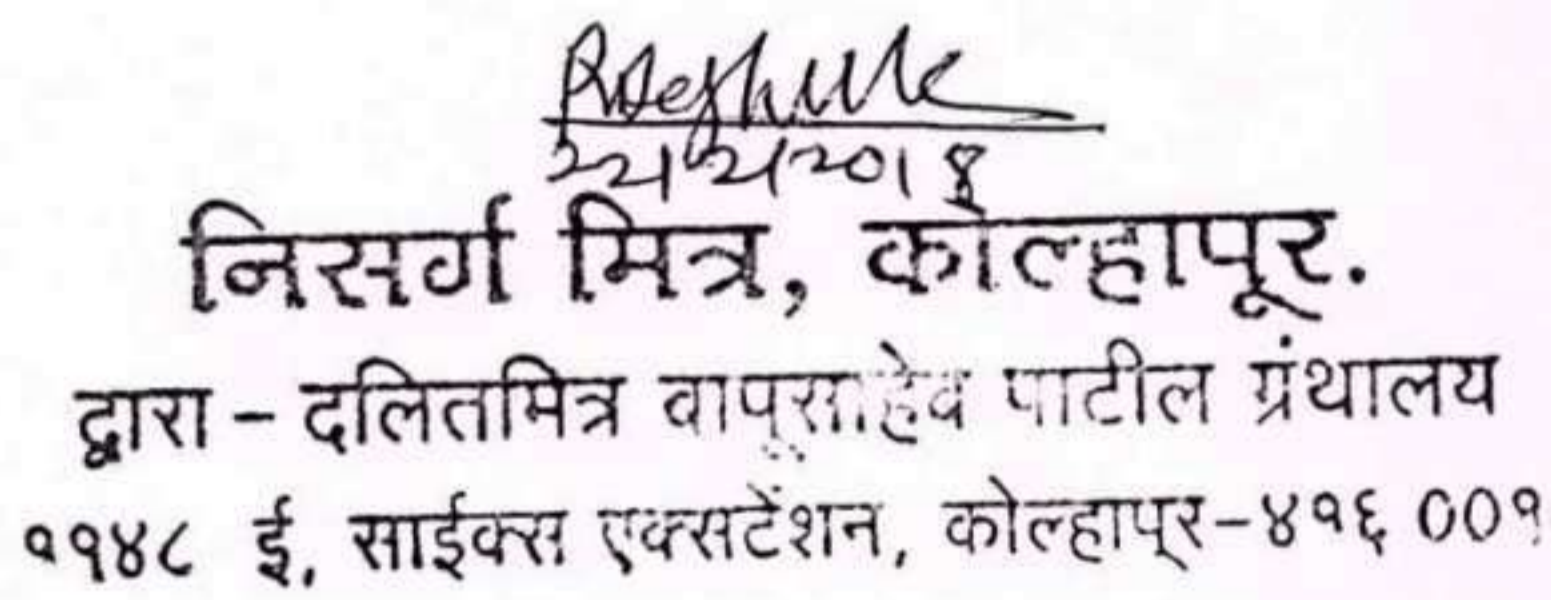 निसर्ग मित्र, कोल्हापूर.
द्वारा - दलितमित्र बापूसाहेब पाटील ग्रंथालय
११४८ ई, साईक्स एक्सटेंशन, कोल्हापूर-४१६ 00१